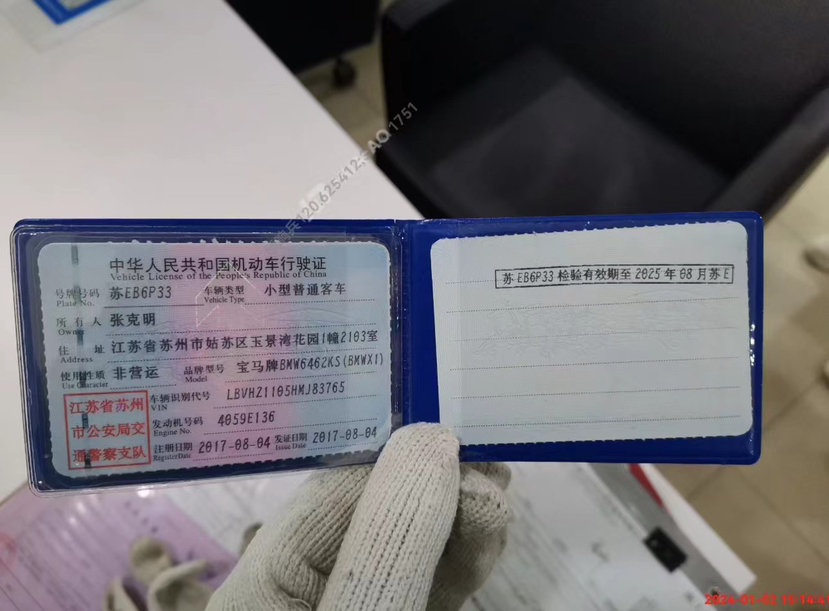 中华人民共和国机动车行驶证
Vehicle License of the People's Republic of China
号牌号码 苏EB6P33 车辆类型 小型普通客车
Plate No. Vehicle Type
所有人 张克明
Owner
住址 江苏省苏州市姑苏区玉景湾花园1幢2103室
Address
使用性质 非营运 品牌型号 宝马牌BMW6462KS(BMWX1)
Use Character Model
江苏省苏州
市公安局交
通警察支队
车辆识别代号 LBVHZ1105HMJ83765
VIN
发动机号码 4059E136
Engine No.
注册日期 2017-08-04 发证日期 2017-08-04
Register Date Issue Date
苏EB6P33 检验有效期至 2025 年 08 月苏E
120.625412
AQ1751